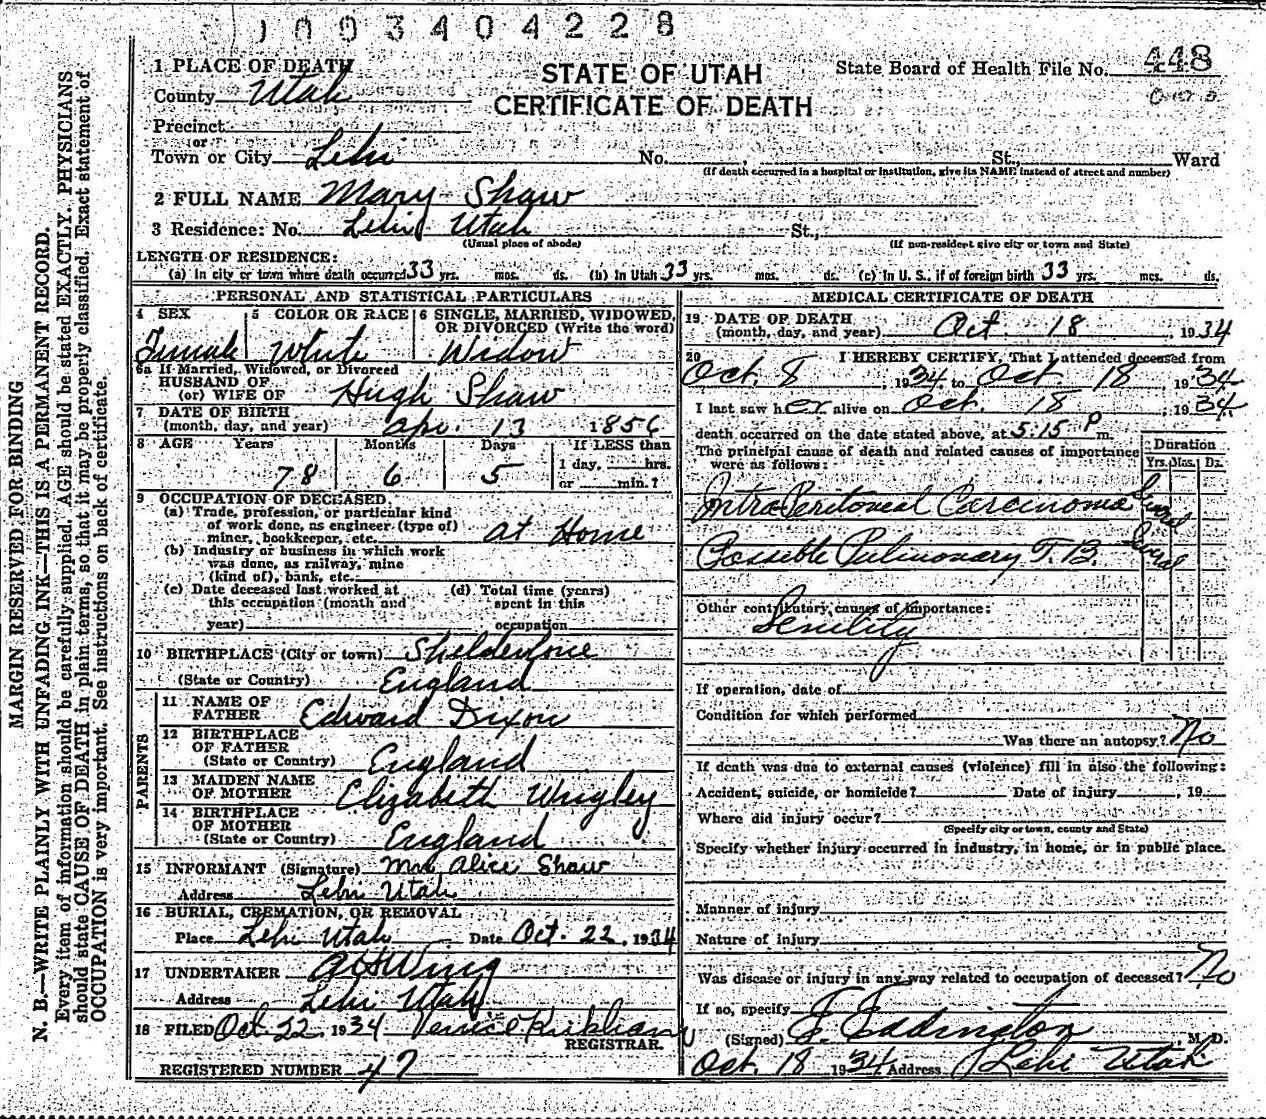 0093404228
1 PLACE OF DEATH
County Utah
STATE OF UTAH
CERTIFICATE OF DEATH
State Board of Health File No. 448
Precinct
or
Town or City Lehi No. , St., Ward
(If death occurred in a hospital or institution, give its NAME instead of street and number)
2 FULL NAME Mary Shaw
3 Residence: No. Lehi Utah St.,
(Usual place of abode) (If non-resident give city or town and State)
LENGTH OF RESIDENCE:
(a) In city or town where death occurred 33 yrs. mos. ds. (b) In Utah 33 yrs. mos. ds. (c) In U. S., if of foreign birth 33 yrs. mos. ds.
PERSONAL AND STATISTICAL PARTICULARS
4 SEX 5 COLOR OR RACE 6 SINGLE, MARRIED, WIDOWED, OR DIVORCED (Write the word)
Female White Widow
6a If Married, Widowed, or Divorced
HUSBAND OF
(or) WIFE OF Hugh Shaw
7 DATE OF BIRTH
(month, day, and year) Apr. 13 1856
8 AGE Years Months Days If LESS than
78 6 5 1 day, hrs.
or min.?
9 OCCUPATION OF DECEASED.
(a) Trade, profession, or particular kind
of work done, as engineer (type of)
miner, bookkeeper, etc. at Home
(b) Industry or business in which work
was done, as railway, mine
(kind of), bank, etc.
(c) Date deceased last worked at
this occupation (month and
year)
(d) Total time (years)
spent in this
occupation
10 BIRTHPLACE (City or town)
(State or Country) England
PARENTS
11 NAME OF
FATHER Edward Dixon
12 BIRTHPLACE
OF FATHER
(State or Country) England
13 MAIDEN NAME
OF MOTHER Elizabeth Wrigley
14 BIRTHPLACE
OF MOTHER
(State or Country) England
15 INFORMANT (Signature) Mrs Alice Shaw
Address Lehi Utah
16 BURIAL, CREMATION, OR REMOVAL
Place Lehi Utah Date Oct. 22, 1934
17 UNDERTAKER Wing
Address Lehi Utah
18 FILED Oct 22, 1934 Vernice Kirkham
REGISTRAR.
REGISTERED NUMBER 47
MEDICAL CERTIFICATE OF DEATH
19 DATE OF DEATH
(month, day, and year) Oct 18 , 1934
20 I HEREBY CERTIFY, That I attended deceased from
Oct. 8 , 1934 to Oct. 18 , 1934
I last saw her alive on Oct. 18 , 1934
death occurred on the date stated above, at 5:15 P m.
The principal cause of death and related causes of importance
were as follows:
Duration
Yrs. Mos. Ds.
Intra Peritoneal Carcinoma Several
Possible Pulmonary T.B. Several
Other contributory causes of importance:
Senility
If operation, date of
Condition for which performed
Was there an autopsy? No
If death was due to external causes (violence) fill in also the following:
Accident, suicide, or homicide? Date of injury , 19
Where did injury occur?
(Specify city or town, county and State)
Specify whether injury occurred in industry, in home, or in public place.
Manner of injury
Nature of injury
Was disease or injury in any way related to occupation of deceased? No
If so, specify
(Signed) Eddington , M. D.
Oct. 18 1934 Address Lehi Utah
MARGIN RESERVED FOR BINDING
N. B.—WRITE PLAINLY WITH UNFADING INK—THIS IS A PERMANENT RECORD.
Every item of information should be carefully supplied. AGE should be stated EXACTLY. PHYSICIANS
should state CAUSE OF DEATH in plain terms, so that it may be properly classified. Exact statement of
OCCUPATION is very important. See instructions on back of certificate.